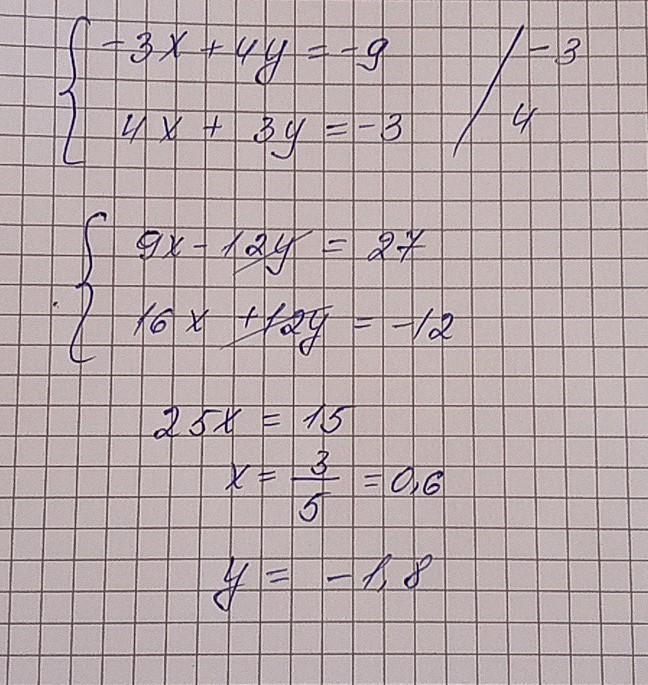 -3x + 4y = -9 / -3
4x + 3y = -3 / 4
9x - 12y = 27
16x + 12y = -12
25x = 15
x = 3/5 = 0,6
y = -1,8